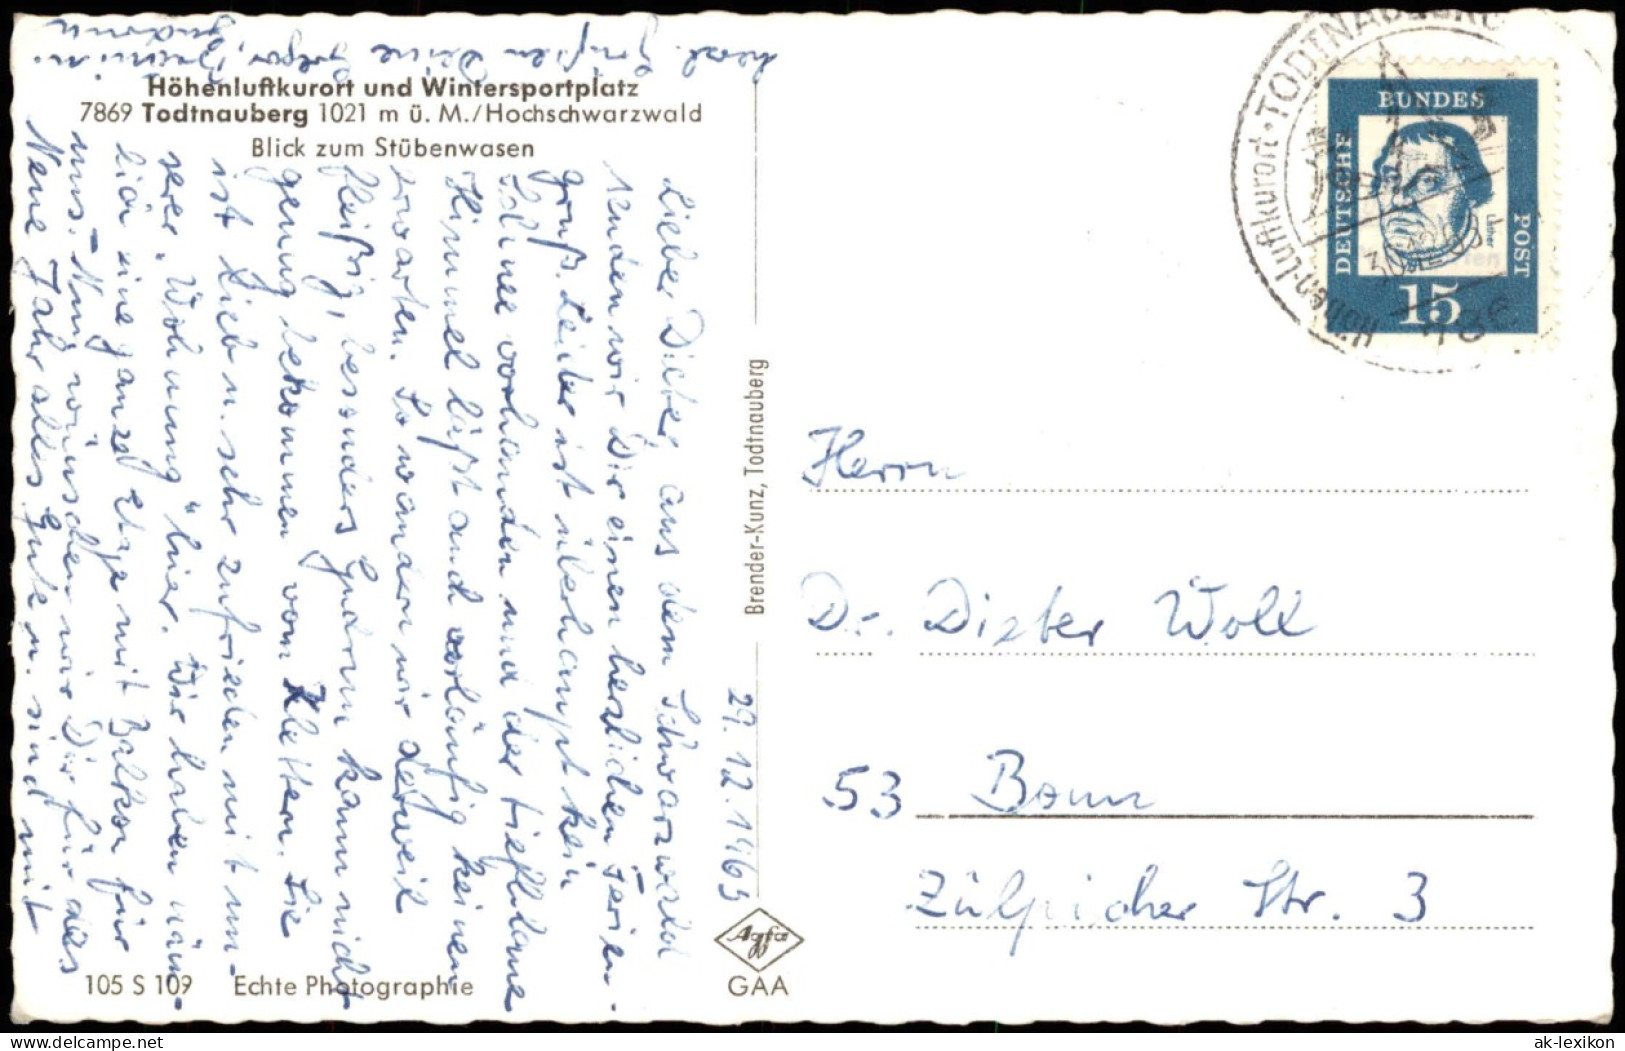 Höhenluftkurort und Wintersportplatz
7869 Todtnauberg 1021 m ü. M./Hochschwarzwald
Blick zum Stübenwasen
29.12.1963
Lieber Dieter, aus dem Schwarzwald
senden wir Dir einen herzlichen Ferien-
gruß. Leider ist überhaupt kein
Schnee vorhanden und der tiefblaue
Himmel läßt auch vorläufig keinen
erwarten. So wandern wir derweil
fleißig, besonders Gudrun kann nicht
genug bekommen vom Klettern. Sie
ist lieb u. sehr zufrieden mit un-
serer „Wohnung" hier. Wir haben näm-
lich eine ganze Etage mit Balkon für
uns. - Nun wünschen wir Dir für das
Neue Jahr alles Gute u. sind mit
herzl. Grüßen Deine
Gudrun
105 S 109 Echte Photographie
Brender-Kunz, Todtnauberg
Agfa
GAA
Höhen-Luftkurort · TODTNAUBERG
DEUTSCHE BUNDES POST
Luther
15
Herrn
Dr. Dieter Woll
53 Bonn
Zülpicher Str. 3
ak-lexikon